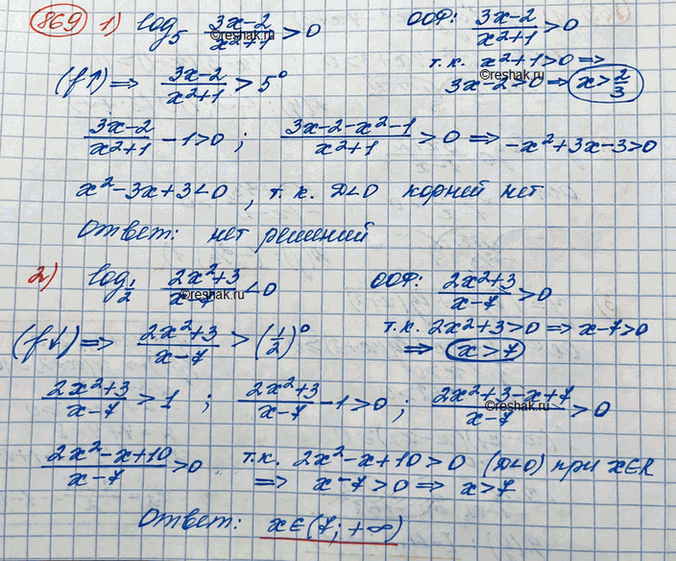 869 1) log₅ (3x-2)/(x²+1) > 0 ООФ: (3x-2)/(x²+1) > 0
©reshak.ru
т.к. x²+1>0 ⇒
©reshak.ru
(f↑) ⇒ (3x-2)/(x²+1) > 5⁰ 3x-2>0 ⇒ x>2/3
(3x-2)/(x²+1) - 1>0 ; (3x-2-x²-1)/(x²+1) > 0 ⇒ -x²+3x-3>0
x²-3x+3<0, т.к. D<0 корней нет
Ответ: нет решений
2) log_{1/2} (2x²+3)/(x-7) < 0 ООФ: (2x²+3)/(x-7) > 0
©reshak.ru
(f↓) ⇒ (2x²+3)/(x-7) > (1/2)⁰ т.к. 2x²+3>0 ⇒ x-7>0
⇒ x>7
(2x²+3)/(x-7) > 1 ; (2x²+3)/(x-7) - 1>0 ; (2x²+3-x+7)/(x-7) > 0
©reshak.ru
(2x²-x+10)/(x-7) > 0 т.к. 2x²-x+10>0 (D<0) при x∈R
⇒ x-7>0 ⇒ x>7
Ответ: x∈(7; +∞)